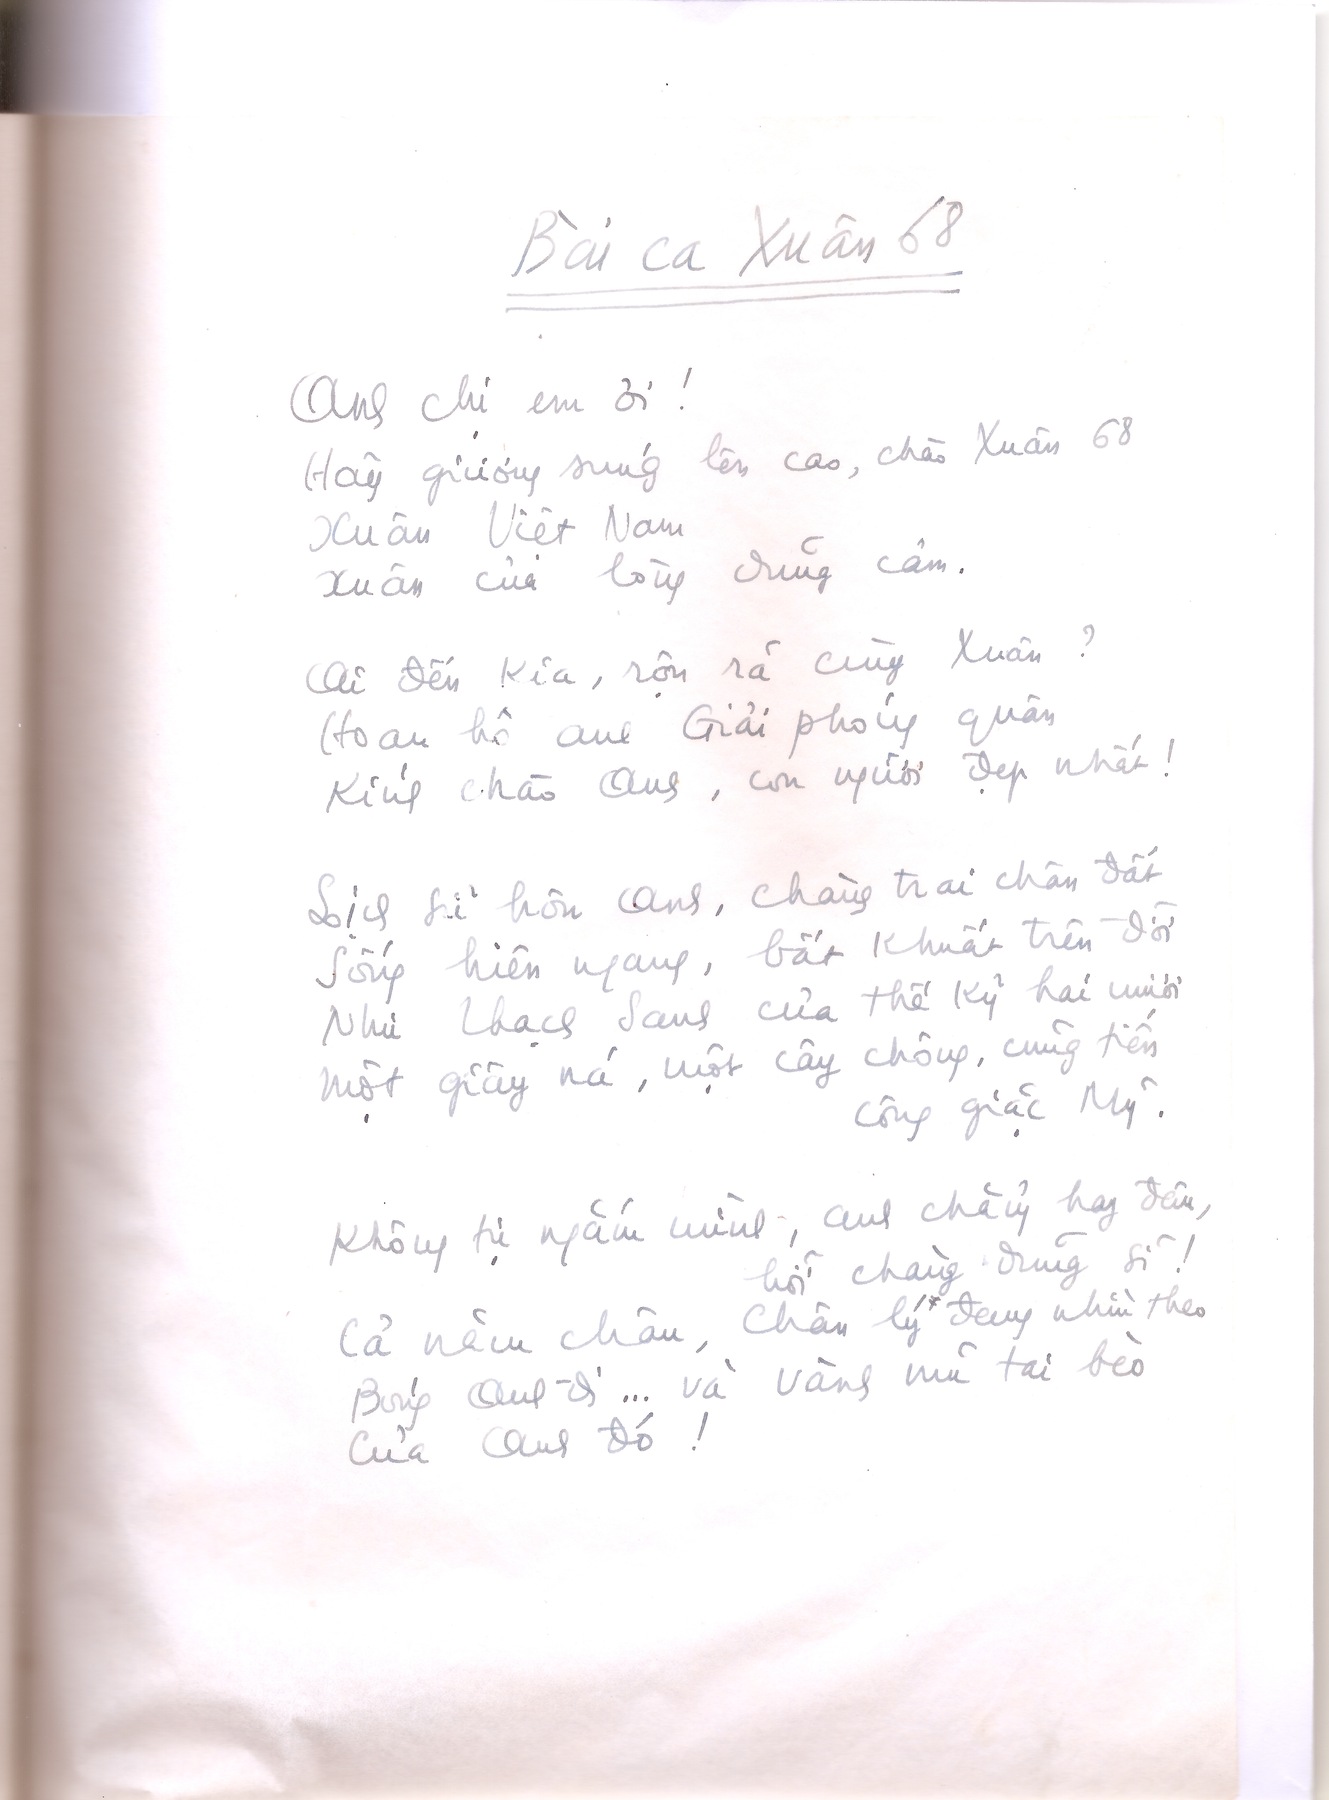 Bài ca Xuân 68
Anh chị em ơi!
Hãy giương súng lên cao, chào Xuân 68
Xuân Việt Nam
Xuân của lòng dũng cảm.
Ai đến kia, rộn rã cùng Xuân?
Hoan hô anh Giải phóng quân
Kính chào Anh, con người đẹp nhất!
Lịch sử hôn Anh, chàng trai chân đất
Sống hiên ngang, bất khuất trên đời
Như Thạch Sanh của thế kỷ hai mươi
Một giây ná, một cây chông, cũng tiến
công giặc Mỹ.
Không tự ngắm mình, anh chẳng hay đâu,
hỡi chàng dũng sĩ!
Cả năm châu, Chân lý đang nhìn theo
Bóng Anh đi... và vành mũ tai bèo
Của Anh đó!